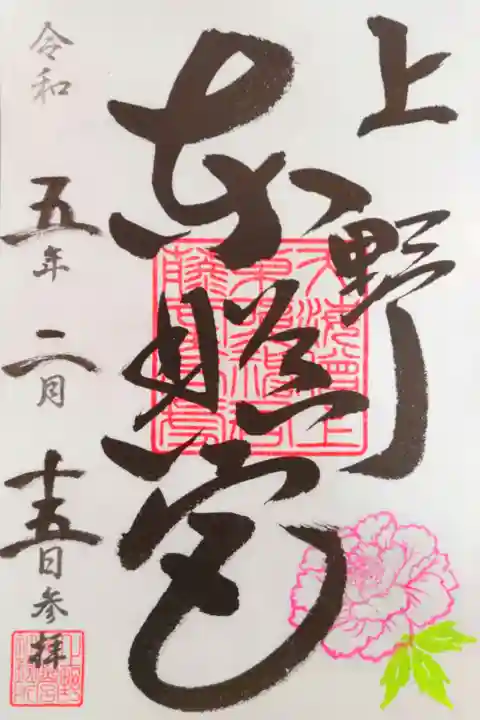 上野
東照宮
令和五年二月十五日参拝